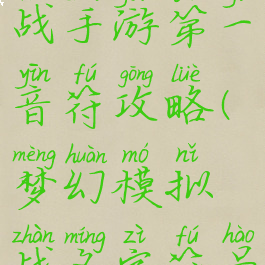 战手游第一
yīn fú gōng lüè
音符攻略(
mèng huàn mó nǐ
梦幻模拟
zhàn míng zì fú hào